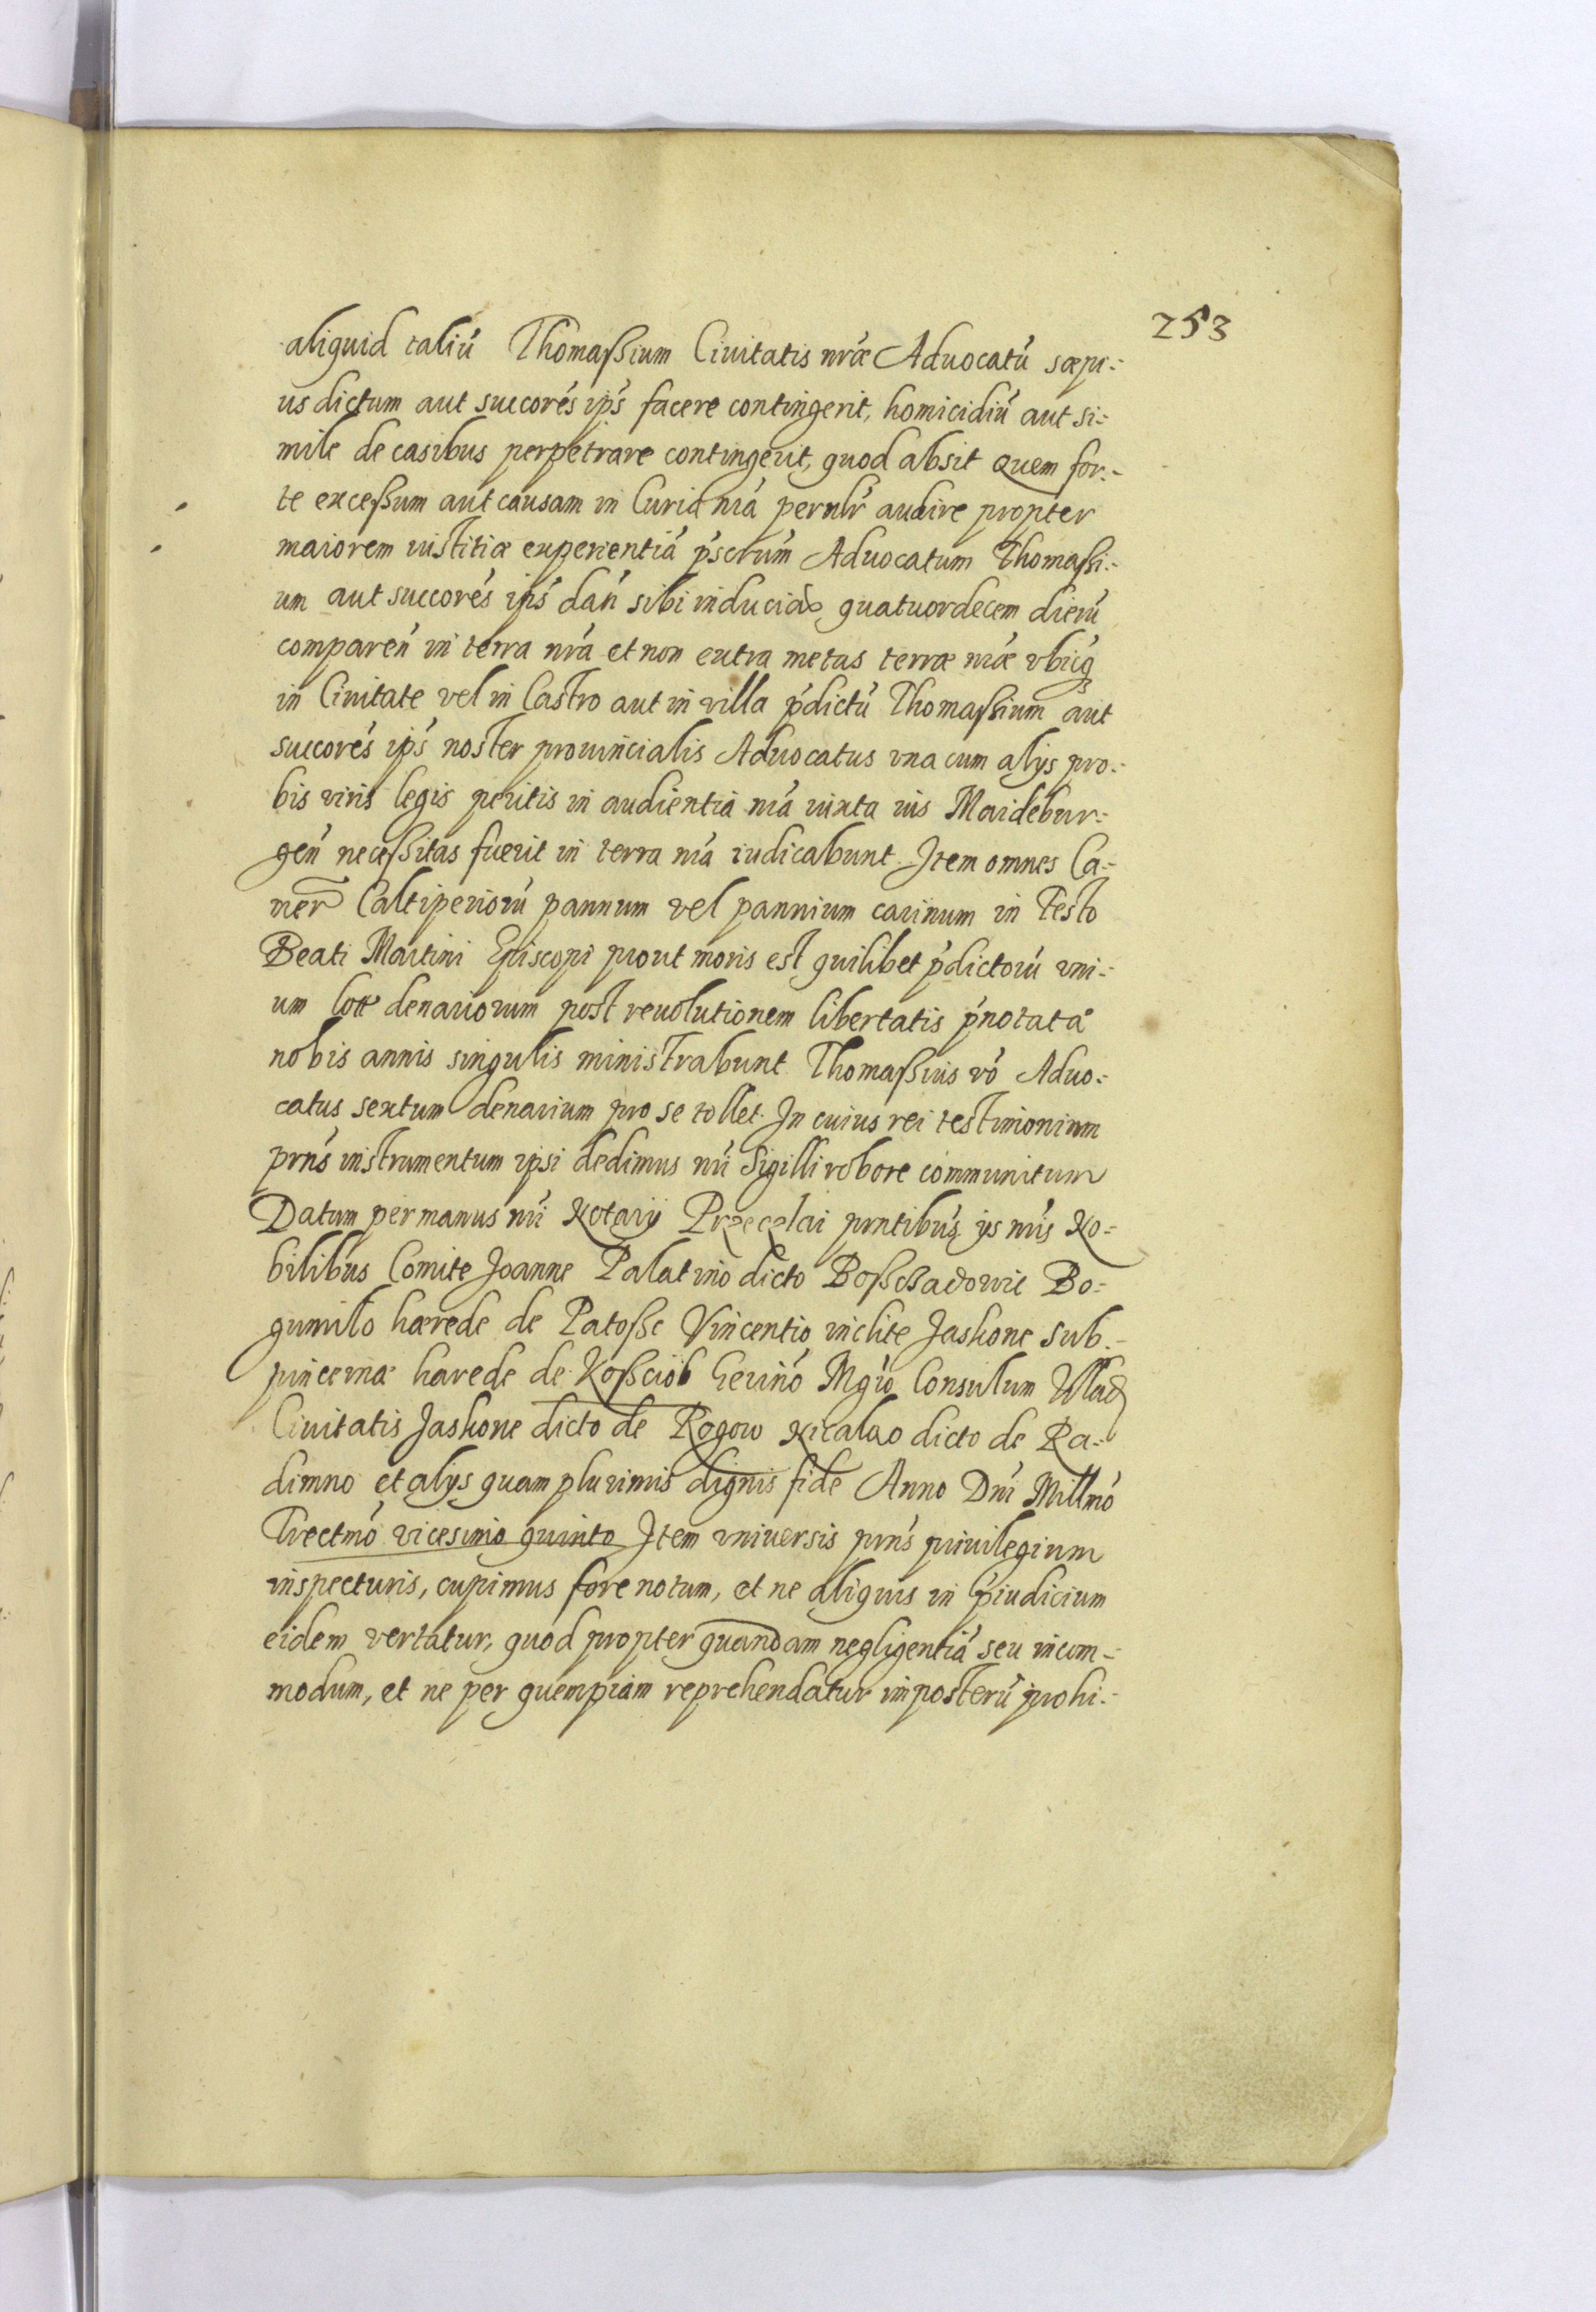 253
aliquid taliū Thomaßium Ciuitatis nr̄æ Aduocatū sæpi:
us dictum aut succorēs ip̄s facere contingerit, homicidiū aut si:
mile de casibus perpetrare contingerit, quod absit Quem for:
te exceßum aut causam in Curia nr̄a pernlr̄ audire propter
maiorem iustitiæ experientiā p̄sctūm Aduocatum Thomaßi:
um aut succorēs ip̄s dan̄ sibi inducias quatuordecem dierū
comparen̄ in terra nr̄a et non extra metas terræ nr̄æ vbicq
in Ciuitate vel in Castro aut in villa p̄dictū Thomaßium aut
succorēs ip̄s noster prouincialis Aduocatus vna cum alijs pro:
bis viris legis peritis in audientia nr̄a iuxta ius Maidebur:
gen̄ neceßitas fuerit in terra nr̄a iudicabunt. Item omnes Ca:
ner̄ Caltiperiorū pannum vel pannium carinum in Festo
Beati Martini Episcopi prout moris est quilibet p̄dictorū vni:
um lott denariorum post reuolutionem libertatis p̄notatā
nobis annis singulis ministrabunt. Thomaßius vō Aduo:
catus sextum denarium pro se tollet. In cuius rei testimonium
prn̄s instrumentum ipsi dedimus nr̄i Sigilli robore communitum
Datum per manus nr̄i Notarij Przeczlai prn̄tibus ijs nr̄is No:
bilibus Comite Joanne Palatino dicto Boßczadowic Bo:
gumilo hærede de Patoßc Vincentio inclite Jaskone sub:
pincernæ hærede de Koßciol Herinō Mgrō Consulum Wlad
Ciuitatis Jaskone dicto de Rogow Nicalao dicto de Ra:
dimno et alijs quam plurimis dignis fide Anno Dn̄i Millnō
Trectmō vicesimo quinto Item vniuersis prn̄s priuilegium
inspecturis, cupimus fore notum, et ne aliquis in p̄iudicium
eidem vertatur, quod propter quandam negligentiā seu incom:
modum, et ne per quempiam reprehendatur imposterū prohi: